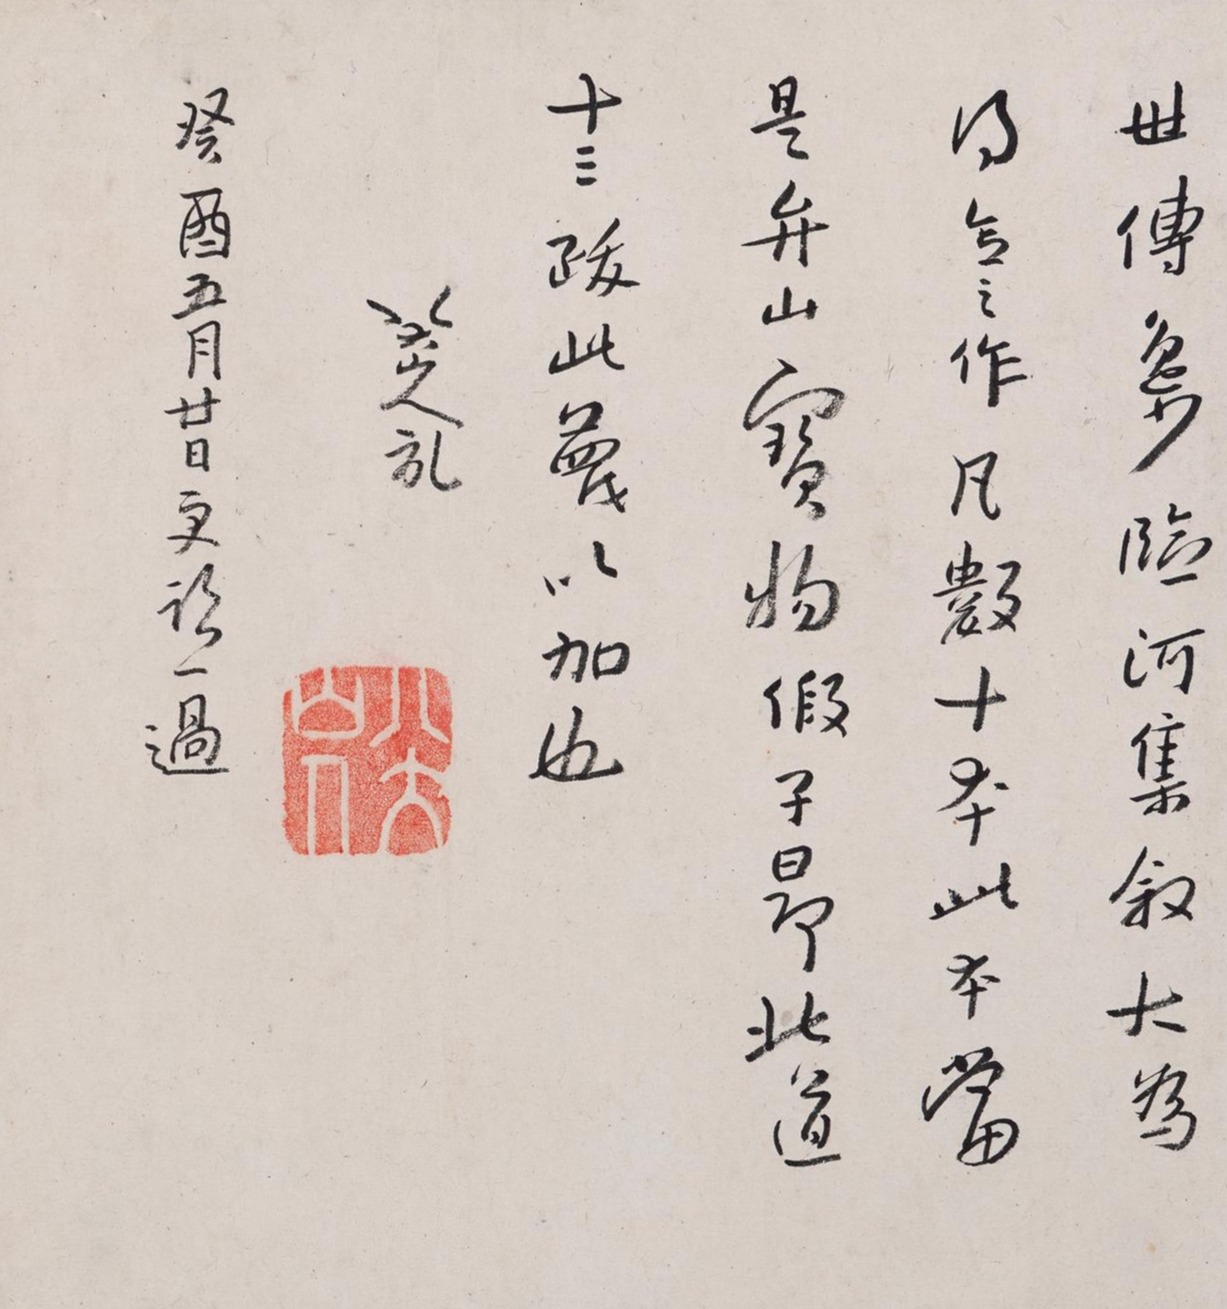 世傳臨河集敘大為
得意之作凡數十本此本當
是弁山寶物假子昂北道
十三跋此蔑以加也
八大山人
癸酉五月廿日更一過
八大山人